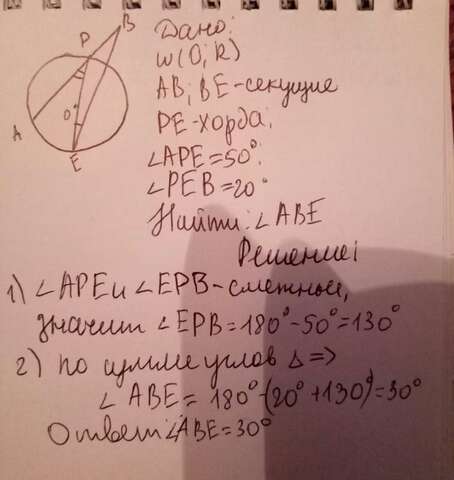 B
P
O
A
E
Дано:
W(O;R)
AB; BE-секущие
PE-хорда;
∠APE=50°;
∠PEB=20°
Найти: ∠ABE
Решение:
1) ∠APE и ∠EPB-смежные,
значит ∠EPB=180°-50°=130°
2) по сумме углов Δ=>
∠ABE=180°-(20°+130°)=30°
Ответ:∠ABE=30°